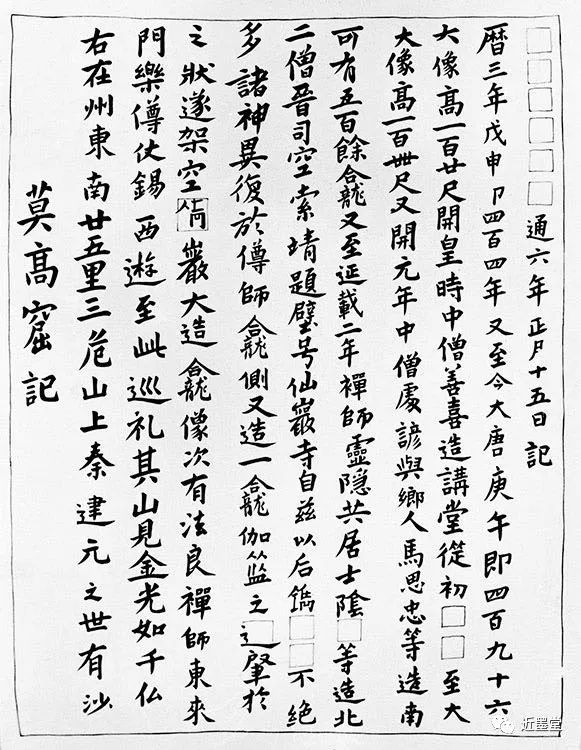 莫高窟記
右在州東南廿五里三危山上秦建元之世有沙
門樂僔仗錫西遊至此巡礼其山見金光如千仏
之狀遂架空巖大造龕像次有法良禪師東來
多諸神異復於僔師龕側又造一龕伽藍之肇於
二僧晉司空索靖題壁号仙巖寺自兹以后鐫□□不絶
可有五百餘龕又至延載二年禪師靈隐共居士陰□等造北
大像高一百卌尺又開元年中僧處諺與鄉人馬思忠等造南
大像高一百廿尺開皇時中僧善喜造講堂從初□□至大
暦三年戊申卩四百四年又至今大唐庚午即四百九十六
□□□□□□通六年正月十五日記
近墨堂